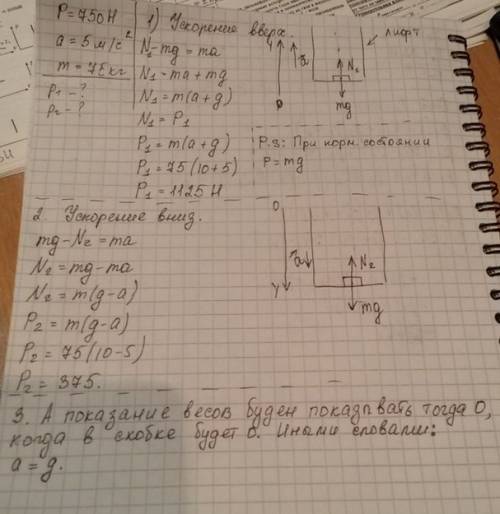 P = 750 Н
a = 5 м/с²
m = 75 кг
P₁ - ?
P₂ - ?
1) Ускорение вверх.
N₁-mg = ma
N₁ = ma + mg
N₁ = m(a+g)
N₁ = P₁
P₁ = m(a+g)
P₁ = 75(10+5)
P₁ = 1125 Н
y
a
N₁
mg
лифт
P.S: При норм. состоянии
P = mg
2. Ускорение вниз.
mg - N₂ = ma
N₂ = mg - ma
N₂ = m(g-a)
P₂ = m(g-a)
P₂ = 75(10-5)
P₂ = 375.
O
a
y
N₂
mg
3. А показание весов буден показвать тогда 0,
когда в скобке будет 0. Иными словами:
a = g.